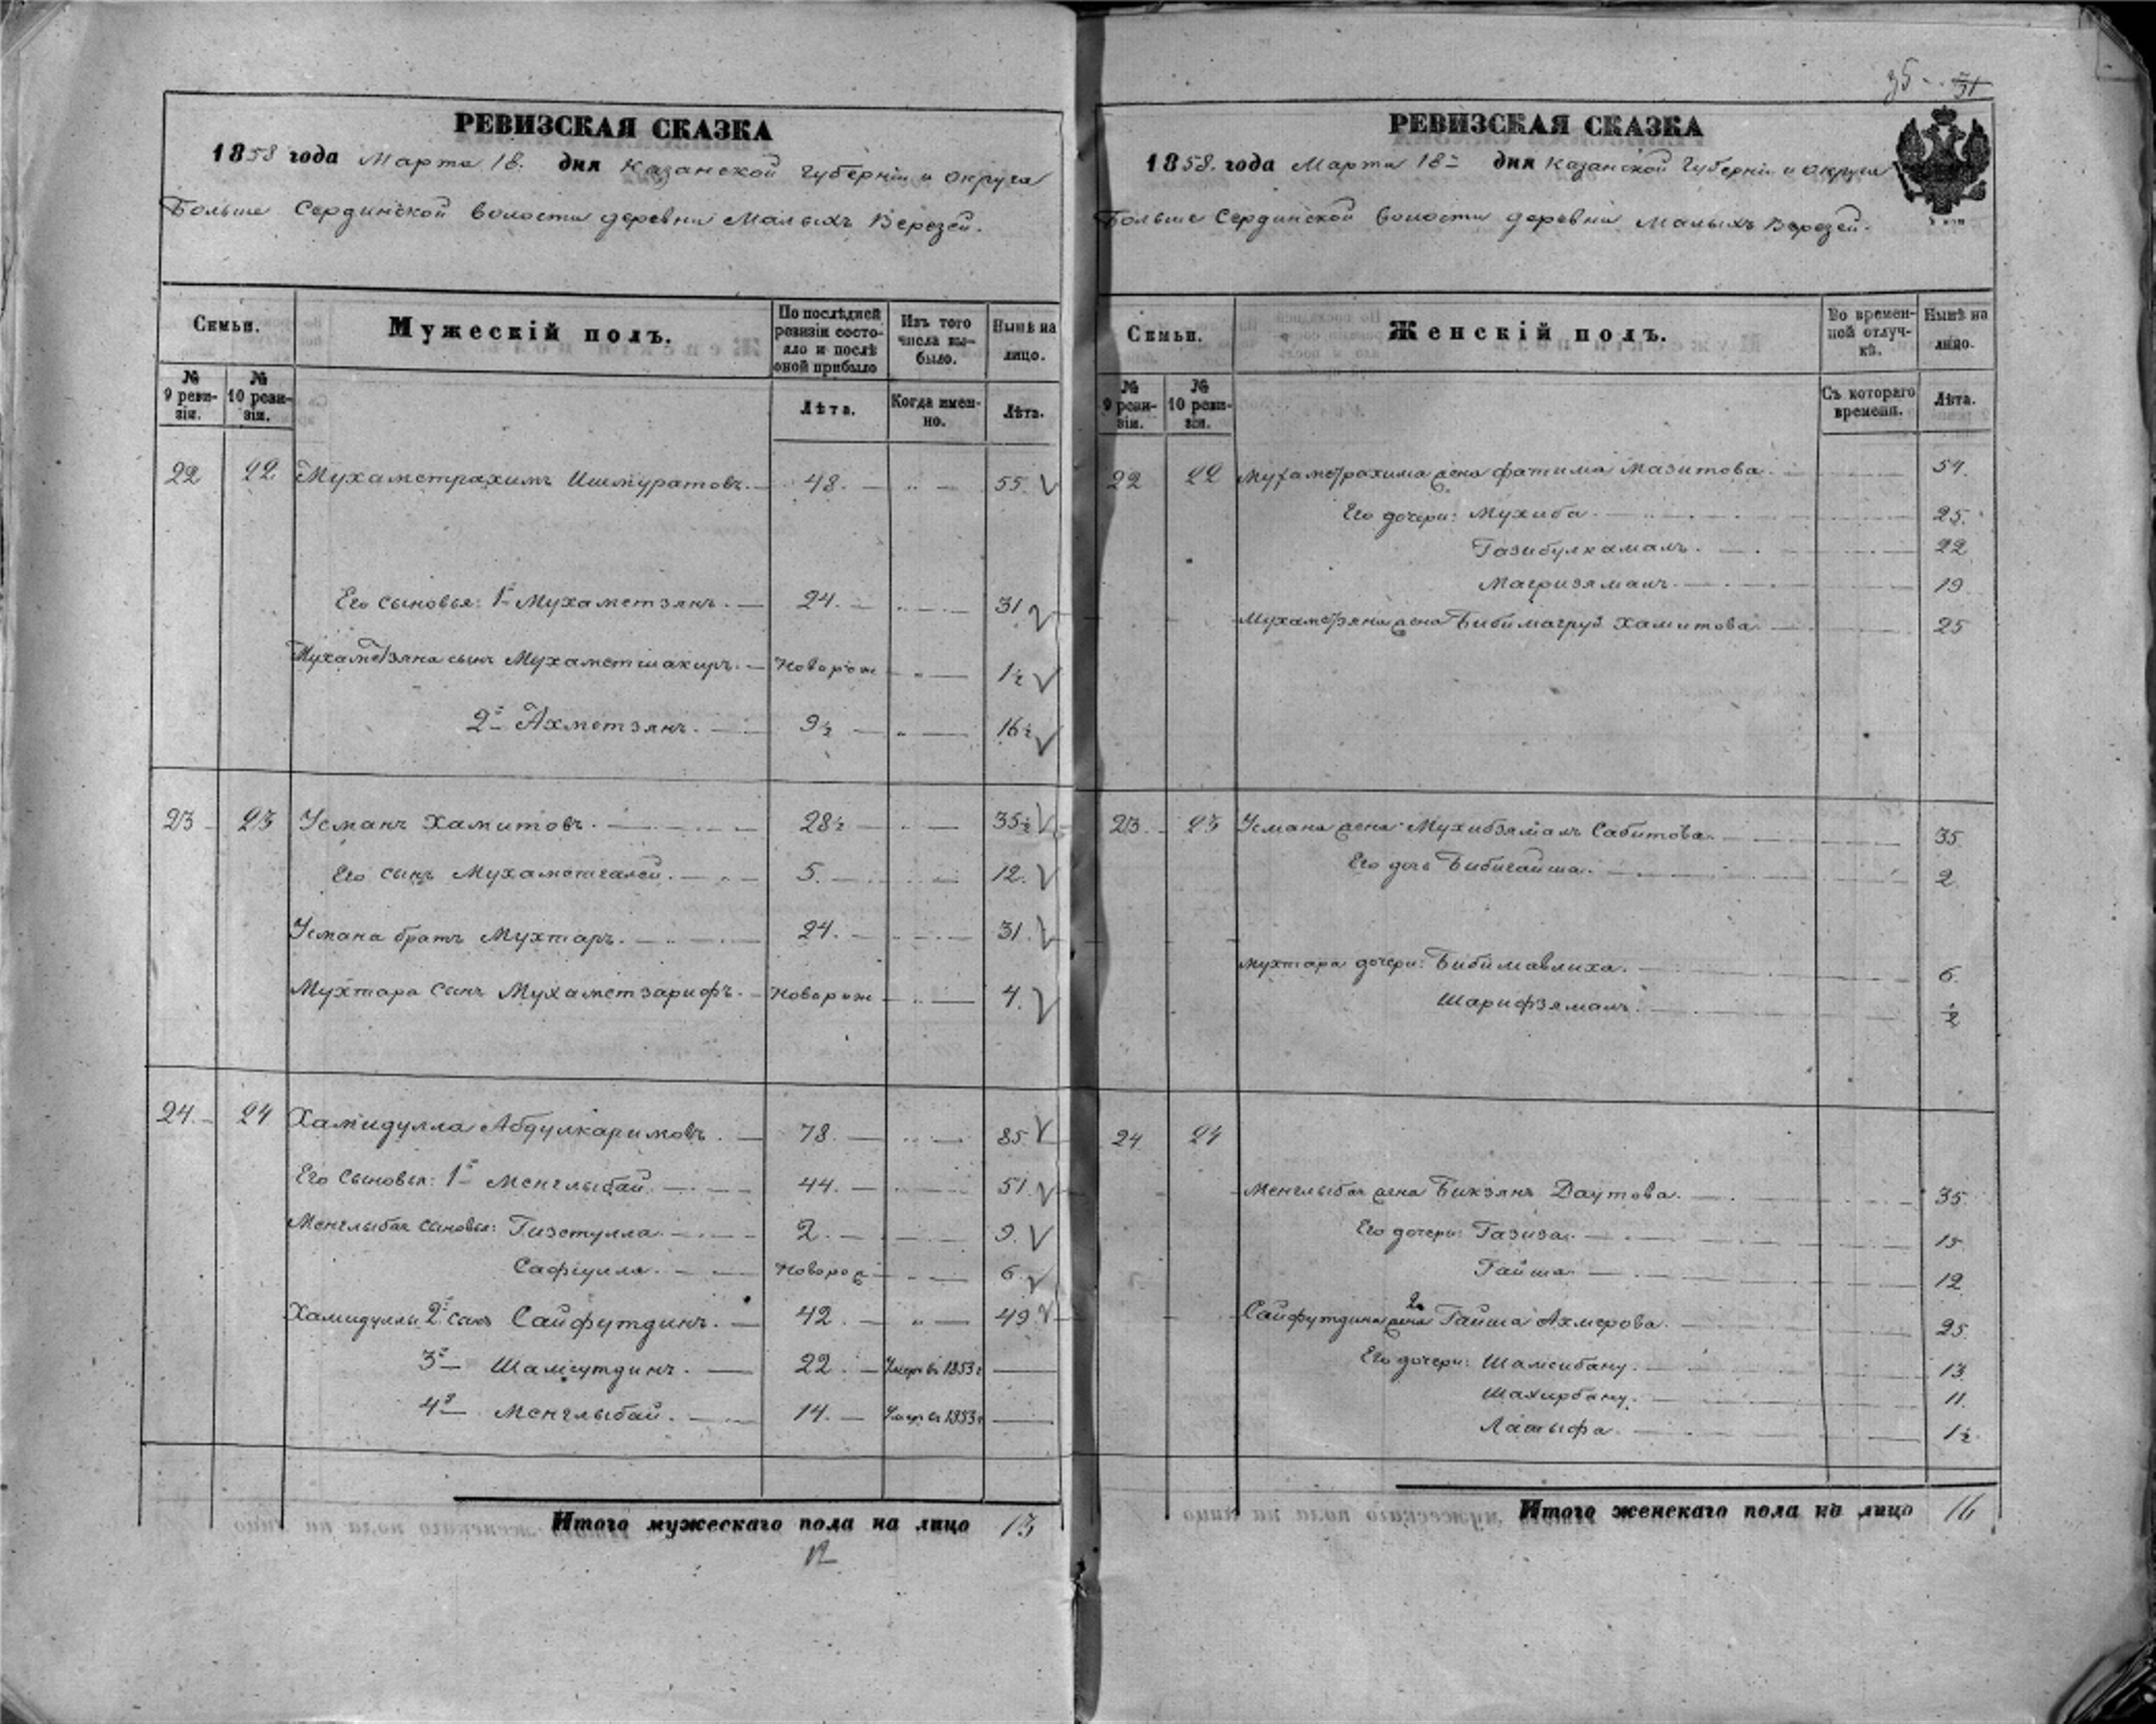 35 31
РЕВИЗСКАЯ СКАЗКА
1858 года Марта 18. дня Казанской Губерніи и округа
Больше Сердинской волости деревни Малыхъ Верезей.
Семьи.
Мужескій полъ.
По послѣдней ревизіи состояло и послѣ оной прибыло
Изъ того числа выбыло.
Нынѣ на лицо.
№ 9 ревизіи.
№ 10 ревизіи.
Лѣта.
Когда именно.
Лѣта.
22 22 Мухаметрахимъ Ишмуратовъ. 48. 55.
Его сыновья: 1й Мухаметзянъ. 24. 31
Мухаметзяна сынъ Мухаметшакиръ. Новорож 1½
2й Ахметзянъ. 9½ 16½
23 23 Усманъ Хамитовъ. 28½ 35½
Его сынъ Мухаметгалей. 5. 12.
Усмана братъ Мухтаръ. 24. 31.
Мухтара сынъ Мухаметзарифъ. Новорож 4.
24. 24 Хамидулла Абдулкаримовъ. 78. 85
Его сыновья: 1й Менглыбай. 44. 51.
Менглыбая сыновья: Гизетулла. 2. 9.
Сафіулла. Новорож 6.
Хамидуллы 2й сынъ Сайфутдинъ. 42. 49
3й Шамсутдинъ. 22. Умеръ въ 1853г
4й Менглыбай. 14. Умеръ въ 1853г
Итого мужескаго пола на лицо 13
РЕВИЗСКАЯ СКАЗКА
1858. года Марта 18 дня Казанской Губерніи и округа
Больше Сердинской волости деревни Малыхъ Верезей.
Семьи.
Женскій полъ.
Во временной отлучкѣ.
Нынѣ на лицо.
№ 9 ревизіи.
№ 10 ревизіи.
Съ котораго времени.
Лѣта.
22 22 Мухаметрахима жена Фатима Мазитова. 54.
Его дочери: Мухиба. 25.
Газибулкамалъ. 22
Магризяманъ. 19
Мухаметзяна жена Бибимагруй Хамитова 25
23. 23 Усмана жена Мухибзямалъ Сабитова. 35.
Его дочь Бибигайша. 2.
Мухтара дочери: Бибимавлиха. 6.
Шарифзямалъ. ½
24 24
Менглыбая жена Бикзянъ Даутова. 35.
Его дочери: Газиза. 15
Гайша 12
Сайфутдина 2я жена Гайша Ахмерова. 25.
Его дочери: Шамсибану. 13.
Шакирбану. 11.
Латыфа. 1½
Итого женскаго пола на лицо 16